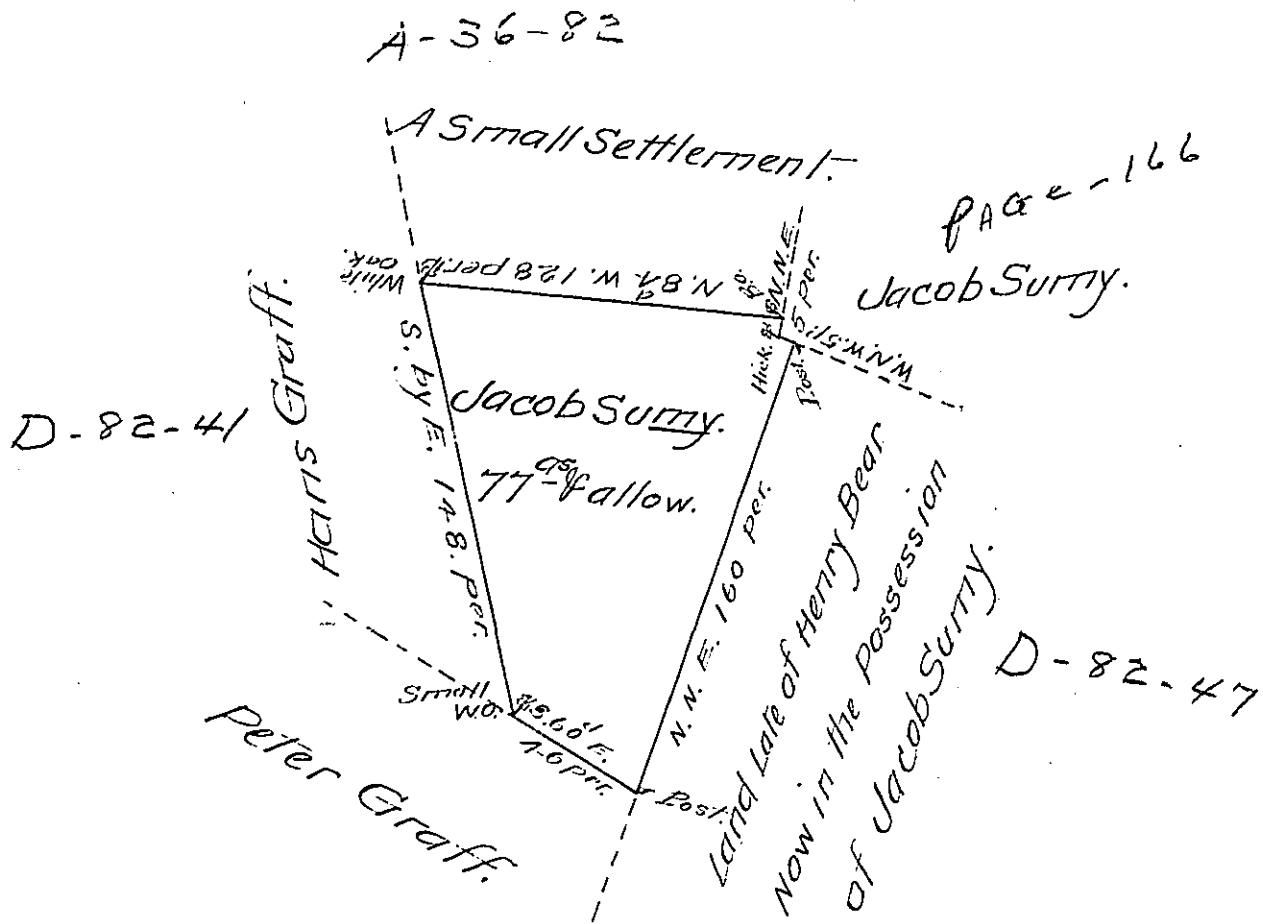 A-36-82
A Small Settlement.
PAGE-166
Jacob Sumy.
White Oak.
N. 84 d W. 128 per.
Hick.
N.N.E.
5 per.
Post.
W.N.W. 5
Hans Graff.
D-82-41
S. by E. 148. Per.
Jacob Sumy.
77 as & allow.
N. N. E. 160 per.
Land Late of Henry Bear
Now in the Possession
of Jacob Sumy.
D-82-47
Small W.O.
S. 60 d E.
46 per.
Post.
Peter Graff.